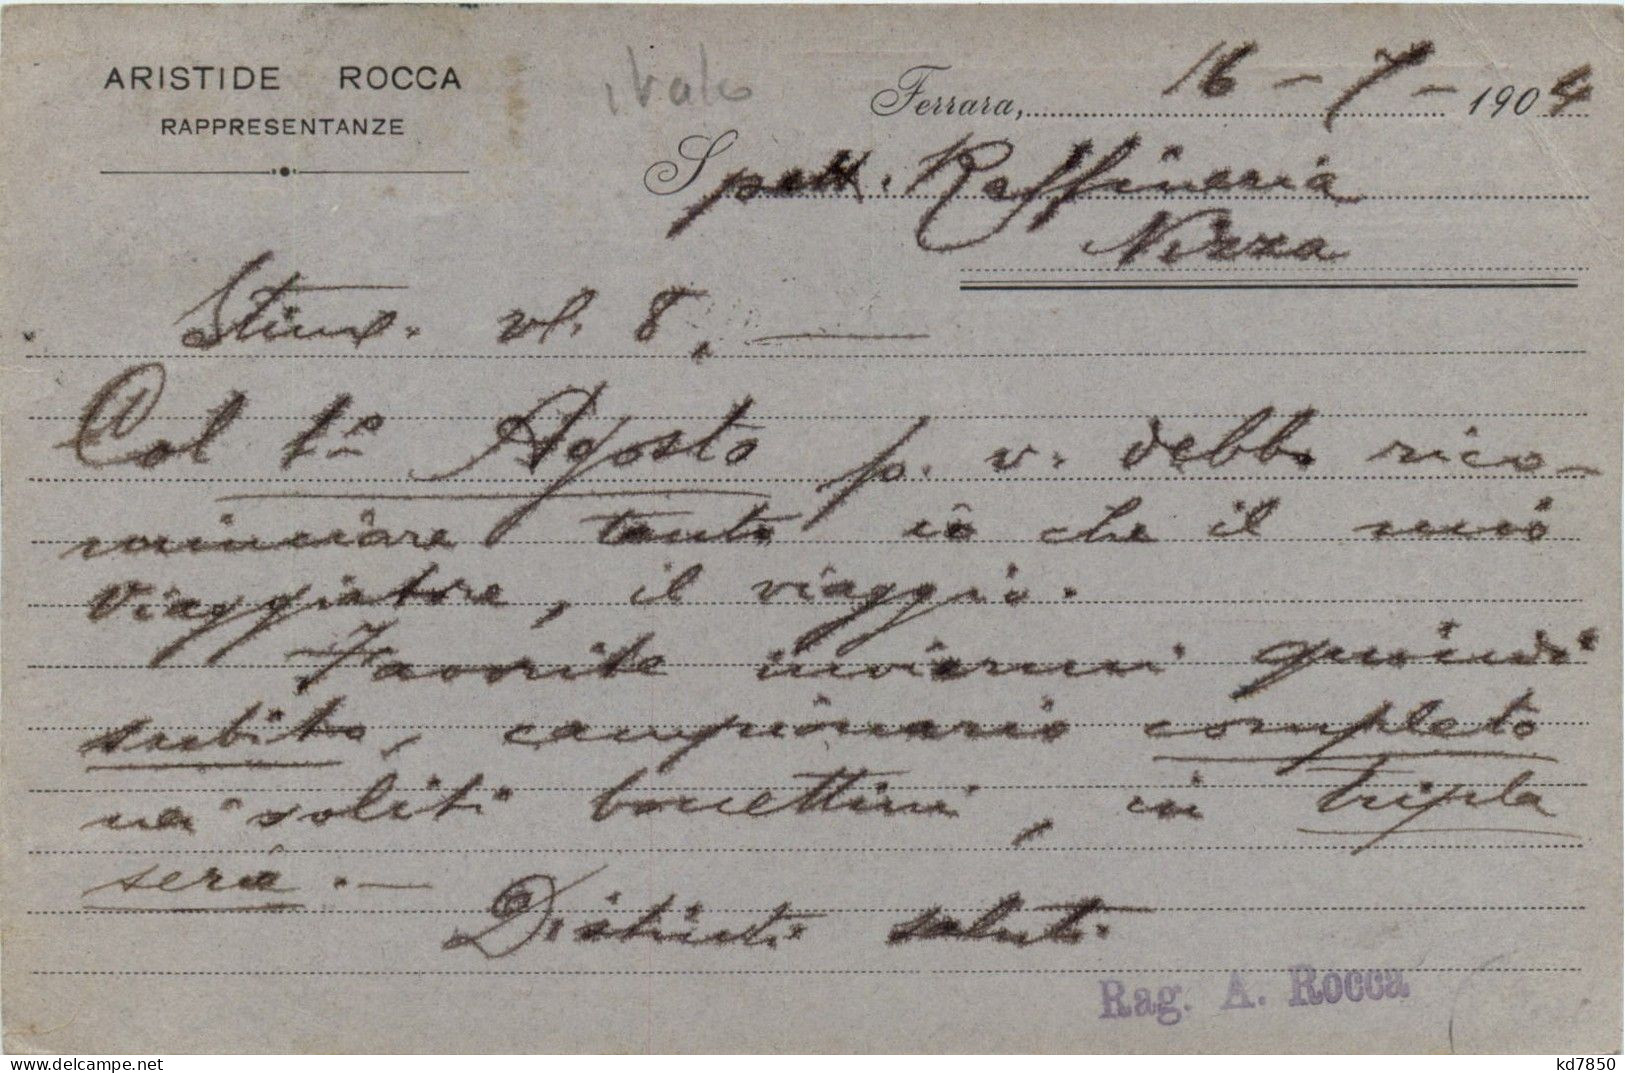 ARISTIDE ROCCA
RAPPRESENTANZE
Ferrara, 16-7-1904
Spett. Raffineria
Nizza
Stim. vl. 8.
Col 1º Agosto p. v. debbo rico-
minciare tanto io che il mio
viaggiatore, il viaggio.
Favorite inviarmi quindi
subito, campionario completo
nei soliti boccettini, in tripla
serie.
Distinti saluti
Rag. A. Rocca
www.delcampe.net
kd7850